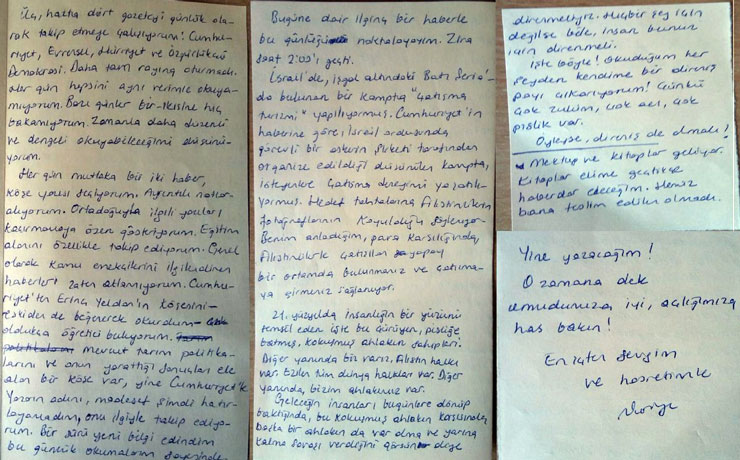 Üç, hatta dört gazeteyi günlük ola-
rak takip etmeye çalışıyorum! Cumhu-
riyet, Evrensel, Hürriyet ve Özgürlükçü
Demokrasi. Daha tam rayına oturmadı.
Her gün hepsini aynı verimle okuya-
mıyorum. Bazı günler bir-ikisine hiç
bakamıyorum. Zamanla daha düzenli
ve dengeli okuyabileceğimi düşünü-
yorum.
Her gün mutlaka bir iki haber,
köşe yazısı seçiyorum. Ayrıntılı notlar
alıyorum. Ortadoğuyla ilgili yazıları
kaçırmamaya özen gösteriyorum. Eğitim
alanını özellikle takip ediyorum. Genel
olarak kamu emekçilerini ilgilendiren
haberleri zaten atlamıyorum. Cumhu-
riyet'ten Erinç Yeldan'ın köşesini-
eskiden de beğenerek okurdum-
oldukça öğretici buluyorum.
mevcut tarım politika-
larını ve onun yarattığı sonuçları ele
alan bir köşe var, yine Cumhuriyet'te
Yazarın adını, maalesef şimdi hatır-
layamadım, onu ilgiyle takip ediyo-
rum. Bir sürü yeni bilgi edindim
bu günlük okumalarım sayesinde
Bugüne dair ilginç bir haberle
bu günlüğü noktalayayım. Zira
saat 2:00'ı geçti.
İsrail'de, işgal altındaki Batı Şeria'-
da bulunan bir kampta "çatışma
turizmi" yapılıyormuş. Cumhuriyet'in
haberine göre; İsrail ordusunda
görevli bir askerin şirketi tarafından
organize edildiği düşünülen kampta,
isteyenlere çatışma deneyimi yaşatılı-
yormuş. Hedef tahtalarına Filistinlilerin
fotoğraflarının koyulduğu söyleniyor.
Benim anladığım, para karşılığında,
Filistinlilerle çatışılan yapay
bir ortamda bulunmanız ve çatışma-
ya girmeniz sağlanıyor.
21. yüzyılda insanlığın bir yüzünü
temsil eden işte bu çürüyen, pisliğe
batmış, kokuşmuş ahlakın sahipleri.
Diğer yanında biz varız. Filistin halkı
var. Ezilen tüm dünya halkları var. Diğer
yanında, bizim ahlakımız var.
Geleceğin insanları bugünlere dönüp
baktığında, bu kokuşmuş ahlakın karşısında,
başka bir ahlakın da var olma ve yarına
kalma savaşı verdiğini görsün diye
direnmeliyiz. Hiçbir şey için
değilse bile, insan bunun
için direnmeli.
İşte böyle! Okuduğum her
şeyden kendime bir direniş
payı çıkarıyorum! Çünkü
çok zulüm, çok acı, çok
pislik var.
Öyleyse, direniş de olmalı!
Mektup ve kitaplar geliyor.
Kitaplar elime geçtikçe
haberdar edeceğim. Henüz
bana teslim edilen olmadı.
Yine yazacağım!
O zamana dek
umudunuza iyi, açlığımıza
has bakın!
En içten sevgim
ve hasretimle